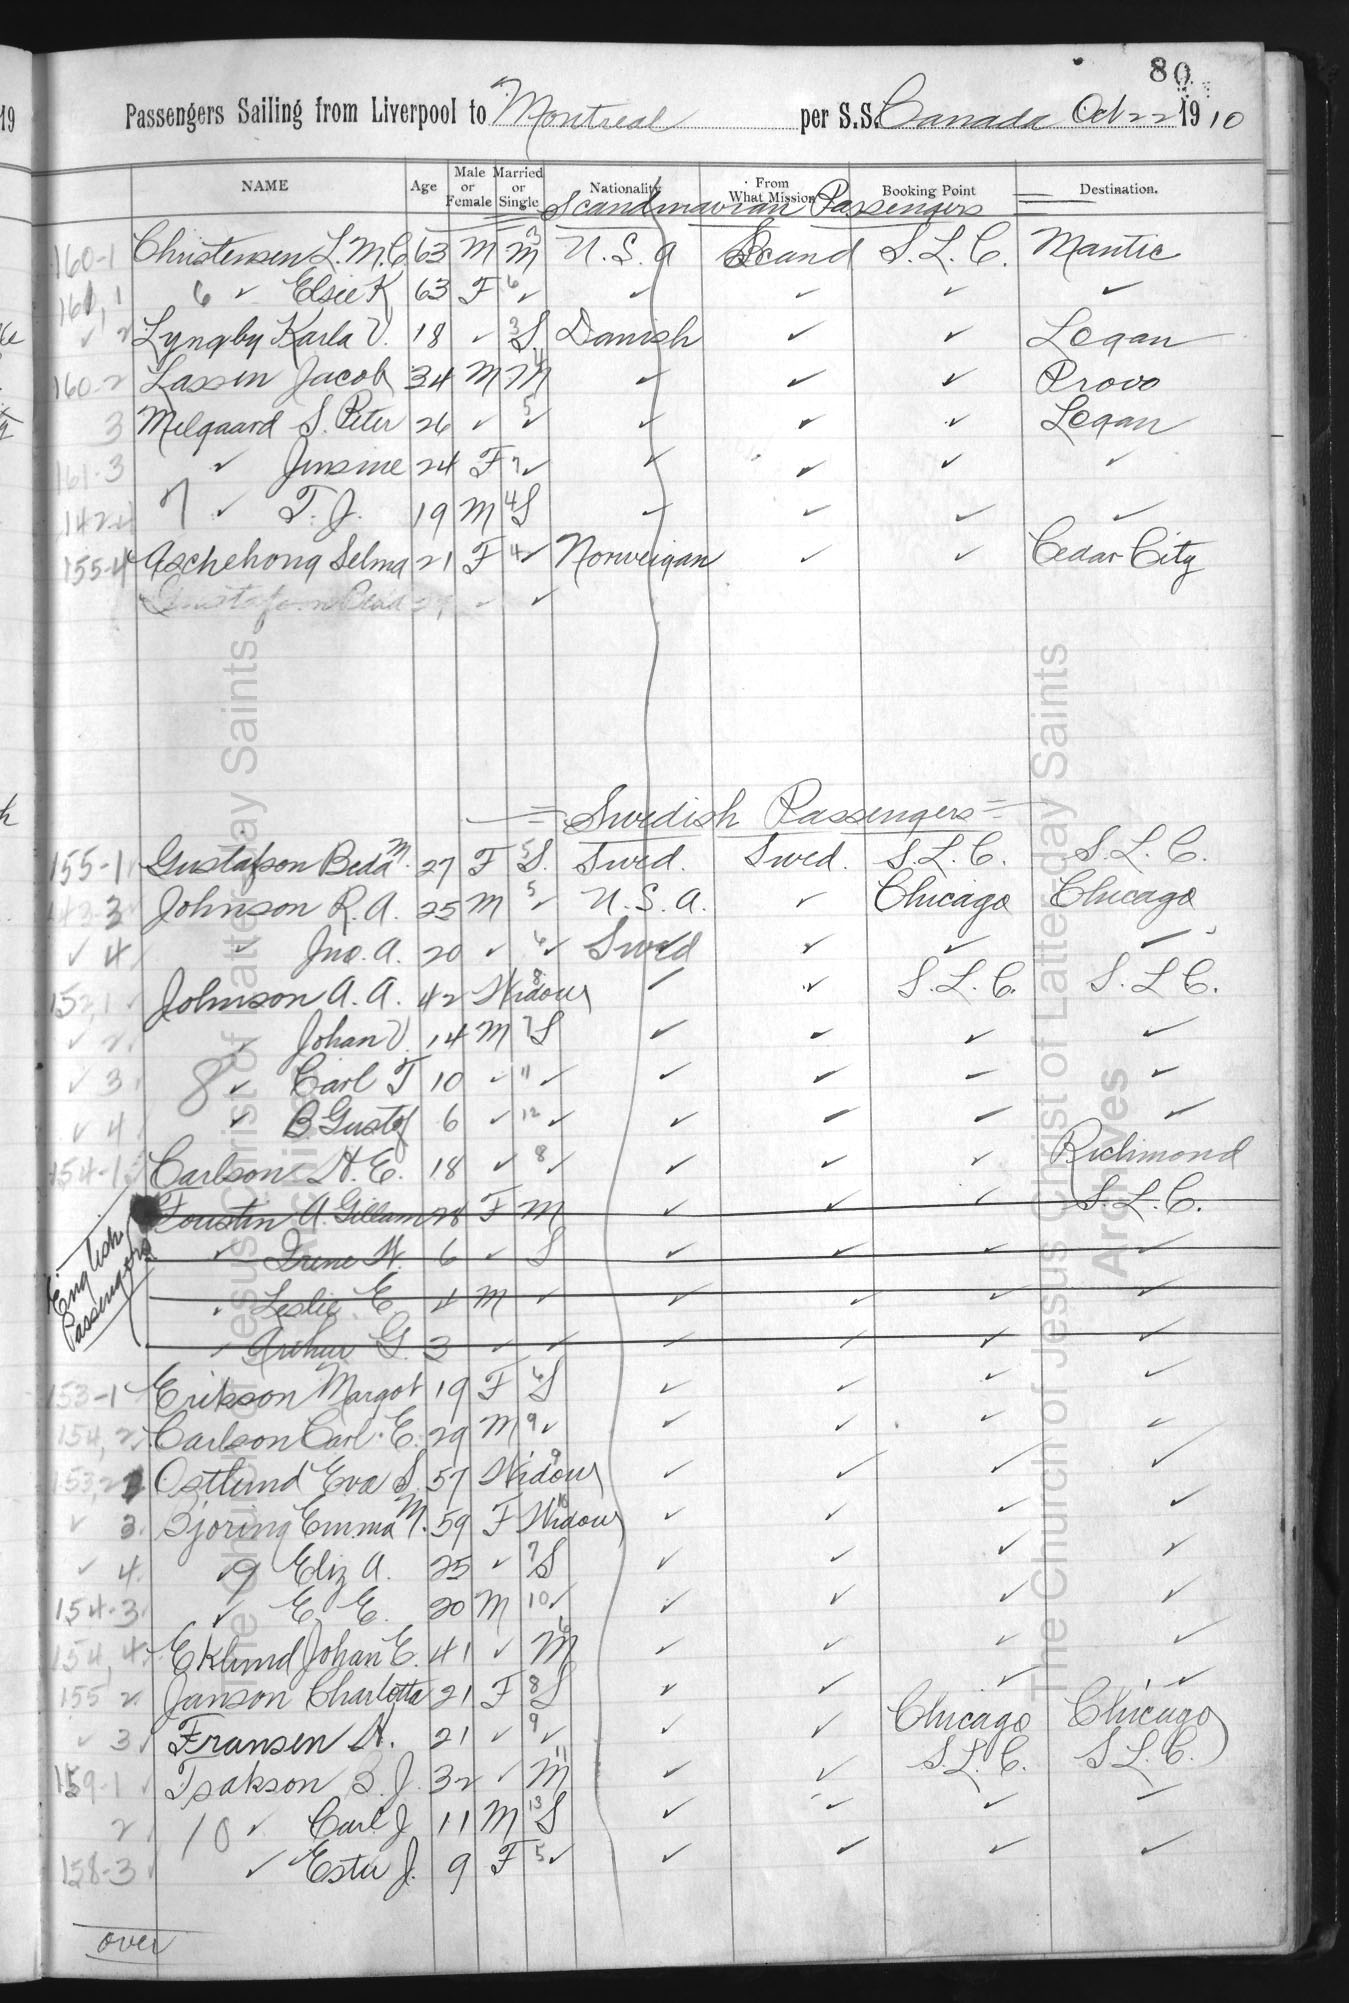 80
Passengers Sailing from Liverpool to Montreal per S.S. Canada Oct 22 1910
19
NAME Age Male or Female Married or Single Nationality From What Mission Booking Point Destination.
Scandinavian Passengers
160-1 Christensen L. M. C. 63 M M 3 U.S.A Scand S.L.C. Mantic
161,1 6 ✓ Elsie K 63 F 6 ✓ ✓ ✓ ✓ ✓
✓ 2 Lyngby Karla V. 18 ✓ 3 S. Danish ✓ ✓ Logan
160-2 Lassen Jacob 34 M M 4 ✓ ✓ ✓ Provo
3 Melgaard S. Peter 26 ✓ 5 ✓ ✓ ✓ ✓ Logan
161-3 ✓ Jensine 24 F 7 ✓ ✓ ✓ ✓ ✓
142 7 ✓ T. J. 19 M 4 S ✓ ✓ ✓ ✓
155-4 Aschehong Selma 21 F 4 ✓ Norweigan ✓ ✓ Cedar City
Gustafson Beda ✓ ✓
= Swedish Passengers =
155-1 Gustafson Beda M. 27 F 5 S. Swed. Swed. S.L.C. S.L.C.
143-3 Johnson R. A. 25 M 5 ✓ U.S.A. ✓ Chicago Chicago
✓ 4 ✓ Jno. A. 20 ✓ 6 ✓ Swed ✓ ✓ ✓
152,1 Johnson A. A. 42 Widow 8 ✓ ✓ S.L.C. S.L.C.
✓ 2 ✓ Johan V. 14 M 7 S ✓ ✓ ✓ ✓
✓ 3 8 ✓ Carl T 10 ✓ 11 ✓ ✓ ✓ ✓ ✓
✓ 4 ✓ B. Gustof 6 ✓ 12 ✓ ✓ ✓ ✓ ✓
154-1 Carlson H. E. 18 ✓ 8 ✓ ✓ ✓ ✓ Richmond
English Passengers
Foustin A. Gillam 28 F M ✓ ✓ ✓ S.L.C.
✓ Irene H. 6 ✓ S ✓ ✓ ✓ ✓
✓ Leslie E. 4 M ✓ ✓ ✓ ✓ ✓
✓ Arthur G. 3 ✓ ✓ ✓ ✓ ✓ ✓
153-1 Erikson Margot 19 F 6 S ✓ ✓ ✓ ✓
154,2 Carlson Carl E. 29 M 9 ✓ ✓ ✓ ✓ ✓
153,2 Ostlund Eva S. 57 Widow 9 ✓ ✓ ✓ ✓
✓ 3. Bjoring Emma M. 59 F Widow 10 ✓ ✓ ✓ ✓
✓ 4. 9 Eliz A. 25 ✓ 7 S ✓ ✓ ✓ ✓
154-3 ✓ E. E. 20 M 10 ✓ ✓ ✓ ✓ ✓
154,4 Eklund Johan E. 41 ✓ M 6 ✓ ✓ ✓ ✓
155 2 Janson Charlotta 21 F 8 S ✓ ✓ ✓ ✓
✓ 3 Fransen H. 21 ✓ 9 ✓ ✓ ✓ Chicago Chicago
159-1 Isakson S. J. 32 ✓ M 11 ✓ ✓ S.L.C. S.L.C.
2 10 ✓ Carl J 11 M 13 S ✓ ✓ ✓ ✓
158-3 ✓ Ester J. 9 F 5 ✓ ✓ ✓ ✓ ✓
over
The Church of Jesus Christ of Latter-day Saints
Archives
The Church of Jesus Christ of Latter-day Saints
Archives